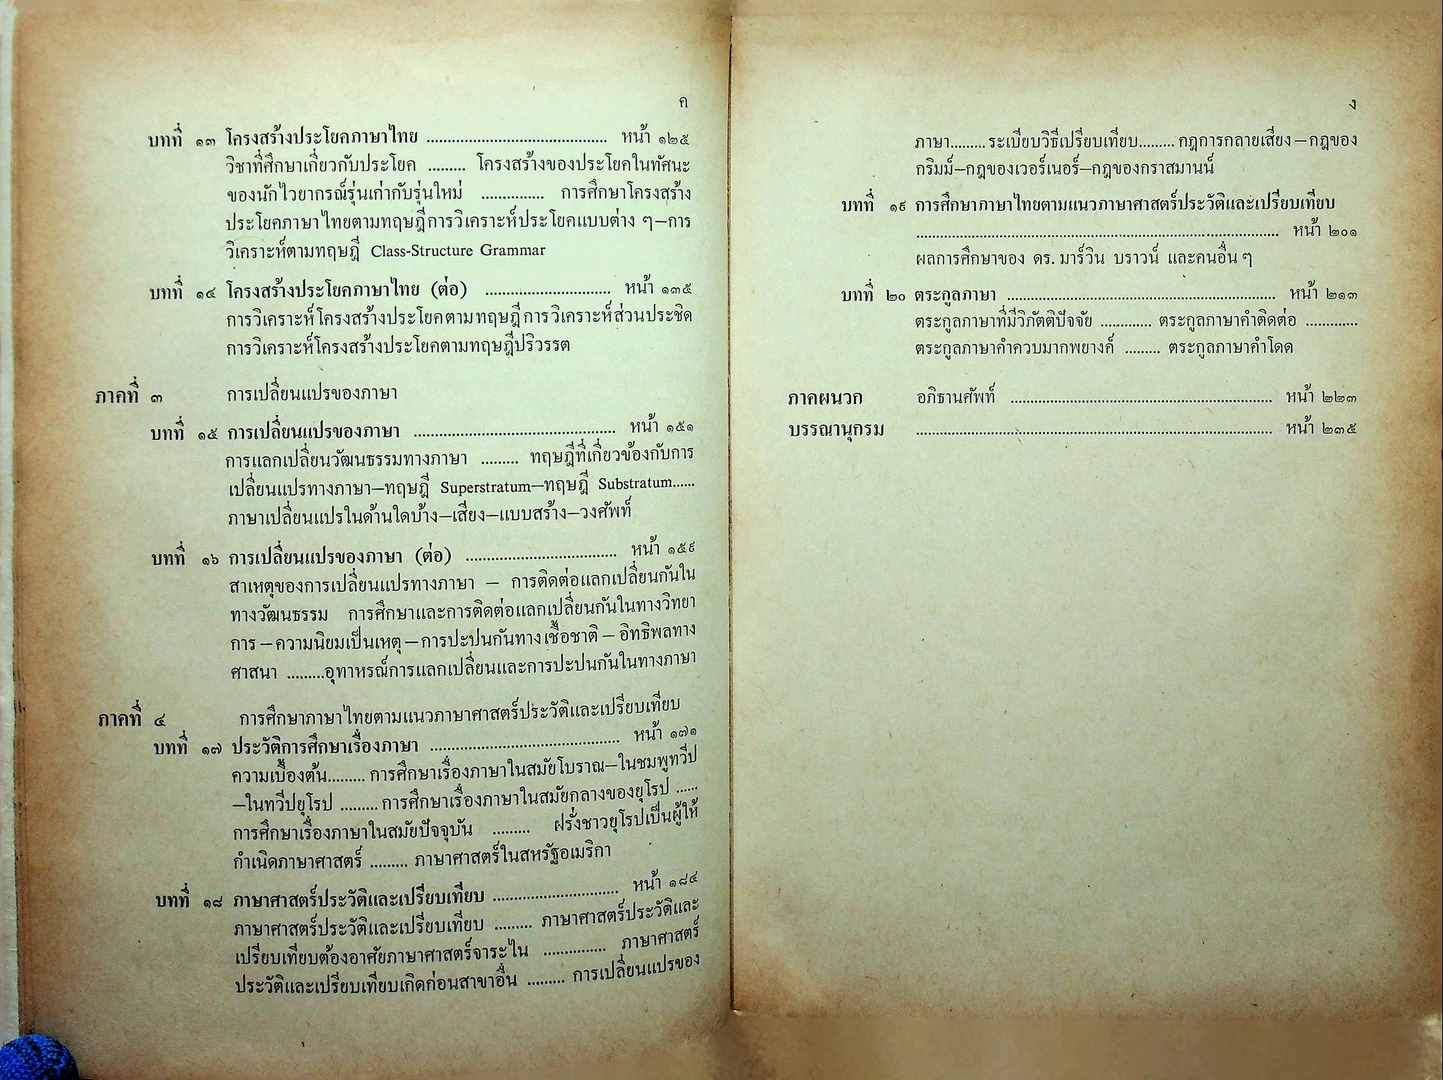 ค
บทที่ ๑๓ โครงสร้างประโยคภาษาไทย .......................................... หน้า ๑๒๕
วิชาที่ศึกษาเกี่ยวกับประโยค ......... โครงสร้างของประโยคในทัศนะ
ของนักไวยากรณ์รุ่นเก่ากับรุ่นใหม่ ............... การศึกษาโครงสร้าง
ประโยคภาษาไทยตามทฤษฎีการวิเคราะห์ประโยคแบบต่าง ๆ—การ
วิเคราะห์ตามทฤษฎี Class-Structure Grammar
บทที่ ๑๔ โครงสร้างประโยคภาษาไทย (ต่อ) .............................. หน้า ๑๓๕
การวิเคราะห์โครงสร้างประโยคตามทฤษฎีการวิเคราะห์ส่วนประชิด
การวิเคราะห์โครงสร้างประโยคตามทฤษฎีปริวรรต
ภาคที่ ๓ การเปลี่ยนแปรของภาษา
บทที่ ๑๕ การเปลี่ยนแปรของภาษา ................................................ หน้า ๑๕๑
การแลกเปลี่ยนวัฒนธรรมทางภาษา ......... ทฤษฎีที่เกี่ยวข้องกับการ
เปลี่ยนแปรทางภาษา—ทฤษฎี Superstratum—ทฤษฎี Substratum......
ภาษาเปลี่ยนแปรในด้านใดบ้าง—เสียง—แบบสร้าง—วงศัพท์
บทที่ ๑๖ การเปลี่ยนแปรของภาษา (ต่อ) .................................... หน้า ๑๕๙
สาเหตุของการเปลี่ยนแปรทางภาษา — การติดต่อแลกเปลี่ยนกันใน
ทางวัฒนธรรม การศึกษาและการติดต่อแลกเปลี่ยนกันในทางวิทยา
การ—ความนิยมเป็นเหตุ—การปะปนกันทางเชื้อชาติ—อิทธิพลทาง
ศาสนา .........อุทาหรณ์การแลกเปลี่ยนและการปะปนกันในทางภาษา
ภาคที่ ๔ การศึกษาภาษาไทยตามแนวภาษาศาสตร์ประวัติและเปรียบเทียบ
บทที่ ๑๗ ประวัติการศึกษาเรื่องภาษา ............................................. หน้า ๑๗๑
ความเบื้องต้น......... การศึกษาเรื่องภาษาในสมัยโบราณ—ในชมพูทวีป
—ในทวีปยุโรป ......... การศึกษาเรื่องภาษาในสมัยกลางของยุโรป ......
การศึกษาเรื่องภาษาในสมัยปัจจุบัน ......... ฝรั่งชาวยุโรปเป็นผู้ให้
กำเนิดภาษาศาสตร์ ......... ภาษาศาสตร์ในสหรัฐอเมริกา
บทที่ ๑๘ ภาษาศาสตร์ประวัติและเปรียบเทียบ .............................. หน้า ๑๘๔
ภาษาศาสตร์ประวัติและเปรียบเทียบ ......... ภาษาศาสตร์ประวัติและ
เปรียบเทียบต้องอาศัยภาษาศาสตร์จาระไน ............... ภาษาศาสตร์
ประวัติและเปรียบเทียบเกิดก่อนสาขาอื่น ......... การเปลี่ยนแปรของ
ง
ภาษา.........ระเบียบวิธีเปรียบเทียบ......... กฎการกลายเสียง—กฎของ
กริมม์—กฎของเวอร์เนอร์—กฎของกราสมานน์
บทที่ ๑๙ การศึกษาภาษาไทยตามแนวภาษาศาสตร์ประวัติและเปรียบเทียบ
.......................................................................................... หน้า ๒๐๑
ผลการศึกษาของ ดร. มาร์วิน บราวน์ และคนอื่น ๆ
บทที่ ๒๐ ตระกูลภาษา .................................................................. หน้า ๒๑๓
ตระกูลภาษาที่มีวิภัตติปัจจัย ............ ตระกูลภาษาคำติดต่อ ............
ตระกูลภาษาคำควบมากพยางค์ ......... ตระกูลภาษาคำโดด
ภาคผนวก อภิธานศัพท์ ................................................................ หน้า ๒๒๓
บรรณานุกรม ........................................................................................ หน้า ๒๓๕